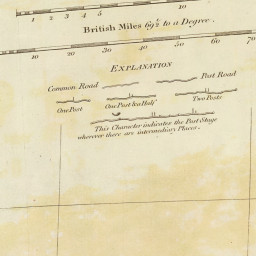 1 2 3 4 5 10
British Miles 69½ to a Degree.
10 20 30 40 50 60 70
EXPLANATION
Common Road Post Road
One Post One Post & a Half Two Posts
This Character indicates the Post Stage
wherever there are intermediary Places.